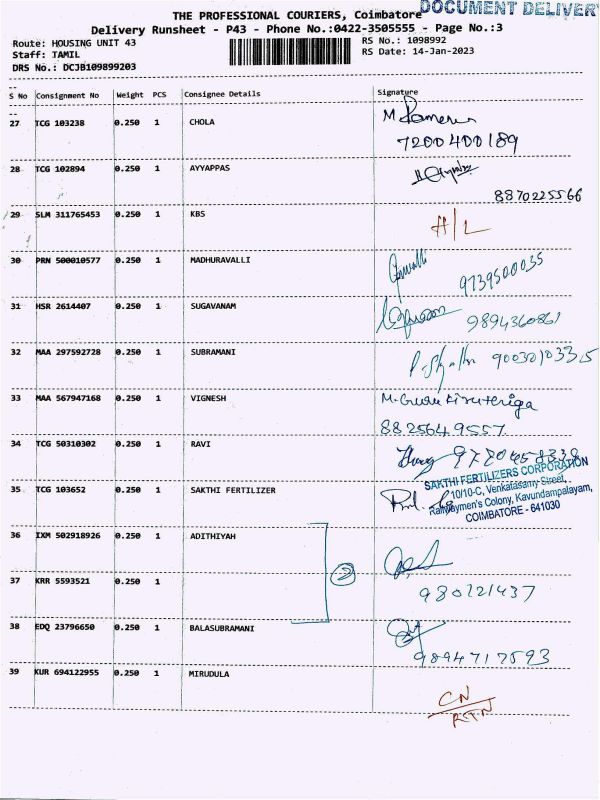 DOCUMENT DELIVERY
THE PROFESSIONAL COURIERS, Coimbatore
Delivery Runsheet - P43 - Phone No.:0422-3505555 - Page No.:3
Route: HOUSING UNIT 43 RS No.: 1098992
Staff: TAMIL RS Date: 14-Jan-2023
DRS No.: DCJB109899203
S No Consignment No Weight PCS Consignee Details Signature
27 TCG 103238 0.250 1 CHOLA
7200400189
28 TCG 102894 0.250 1 AYYAPPAS
8870225566
29 SLM 311765453 0.250 1 KBS H/L
30 PRN 500010577 0.250 1 MADHURAVALLI
9739500035
31 HSR 2614407 0.250 1 SUGAVANAM
9894360861
32 MAA 297592728 0.250 1 SUBRAMANI 9003010335
33 MAA 567947168 0.250 1 VIGNESH
8825649557
34 TCG 50310302 0.250 1 RAVI
35 TCG 103652 0.250 1 SAKTHI FERTILIZER
SAKTHI FERTILIZERS CORPORATION
10/10-C, Venkatasamy Street,
Railwaymen's Colony, Kavundampalayam,
COIMBATORE - 641030
36 IXM 502918926 0.250 1 ADITHIYAH
37 KRR 5593521 0.250 1 2
980721437
38 EDQ 23796650 0.250 1 BALASUBRAMANI
9894717593
39 KUR 694122955 0.250 1 MIRUDULA
CN
R.T.N